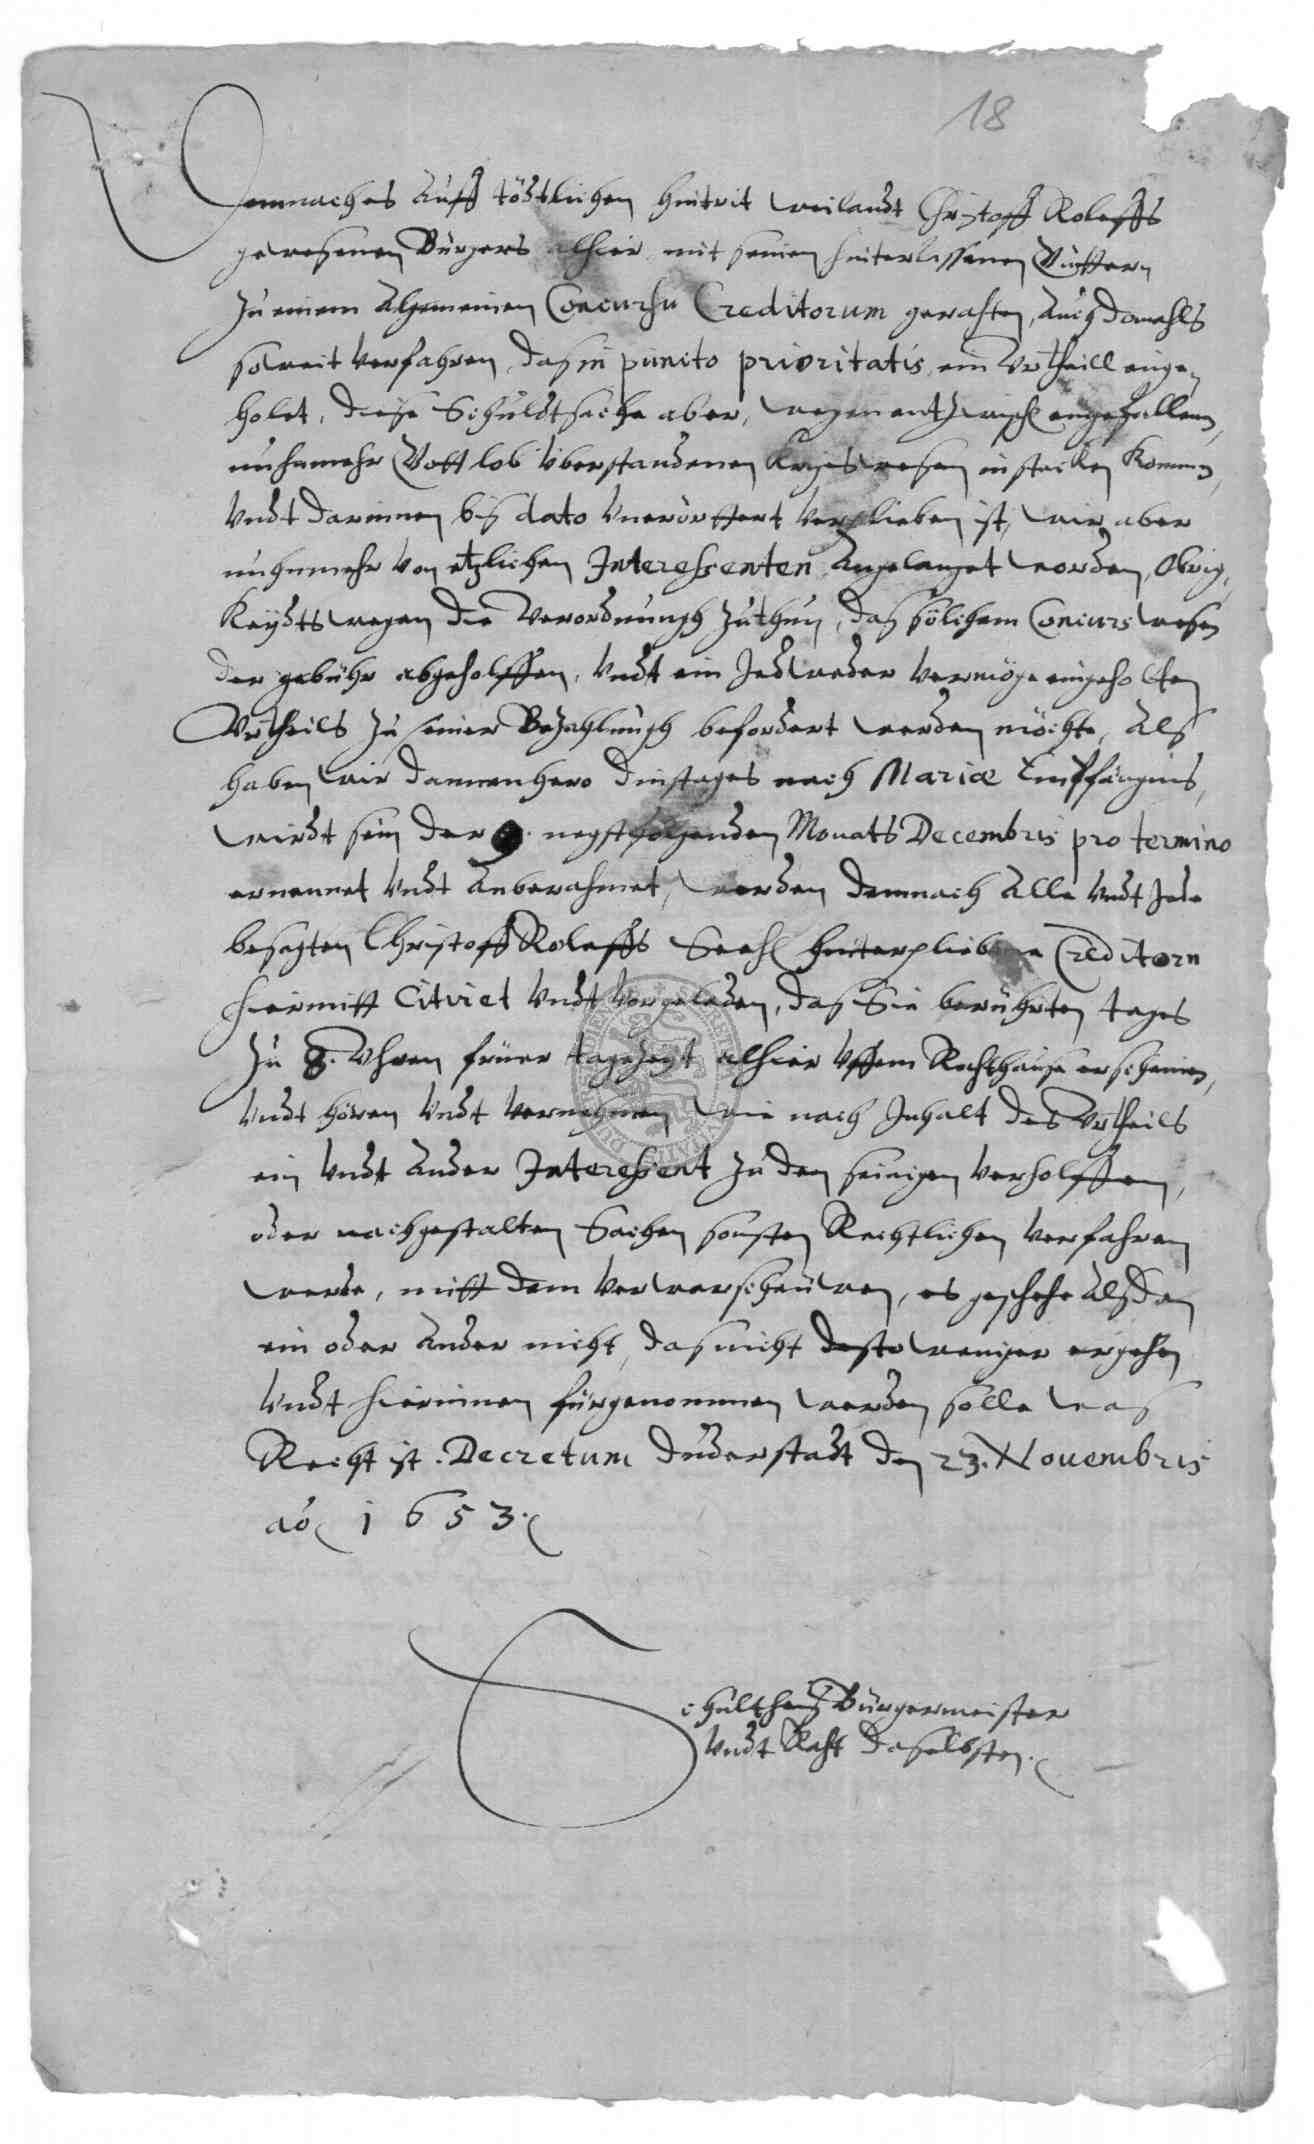 18
Demnach es Auff tödtlichen hintrit weilandt Christoff Roleffs
gewesenen Bürgers alhier mit seinen hinterlassenen Güttern
zu einem Algemeinen Concursu Creditorum gerahten, Auch domahls
soweit verfahren, das in puncto prioritatis ein Urtheill einge-
holet, diese Schuldtsache aber, wegen entzwisch eingefallenen,
nuhnmehr Gott lob überstandenen Krigswesen in stecken kommen,
Undt darinnen bis dato Unerörttert verplieben ist, wir aber
nuhnmehr von etzlichen Interessenten Angelanget worden, Obrig-
keydts wegen die Verordnungh zuthun, das sölichem Concurs wesen
der gebühr abgeholffen, Undt ein Jedweder vermöge eingeholten
Urtheils zu seiner Bezahlungh befordert werden möchte, Als
haben wir dannenhero dinstages nach Mariæ Empfängnis,
wirdt sein der 9. negstfolgenden Monats Decembris pro termino
ernennet Undt Anberahmet, werden demnach Alle Undt Jede
besagten Christoff Roleffs Seehl hinterpliebene Creditorn
hiermitt Citiret Undt Vorgeladen, das Sie berührten tages
Zu 8. Uhren früer tagezeyt alhier Uffem Rahthause erscheinen,
Undt hören Undt vernehmen wie nach Inhalt des Urtheils
ein Undt Ander Interessent zu dem seinigen verholffen,
oder nach gestalten Sachen sonsten Rechtlichen verfahren
werde, mitt dem verwarschauwen, es geschehe Alsdan
ein oder Ander nicht, das nicht desto weniger ergehen
Undt hierinnen fürgenommen werden solle was
Recht ist. Decretum Duderstadt den 23. Nouembris
ao 1653.
Schultheiß Bürgermeister
Undt Raht daselbsten.